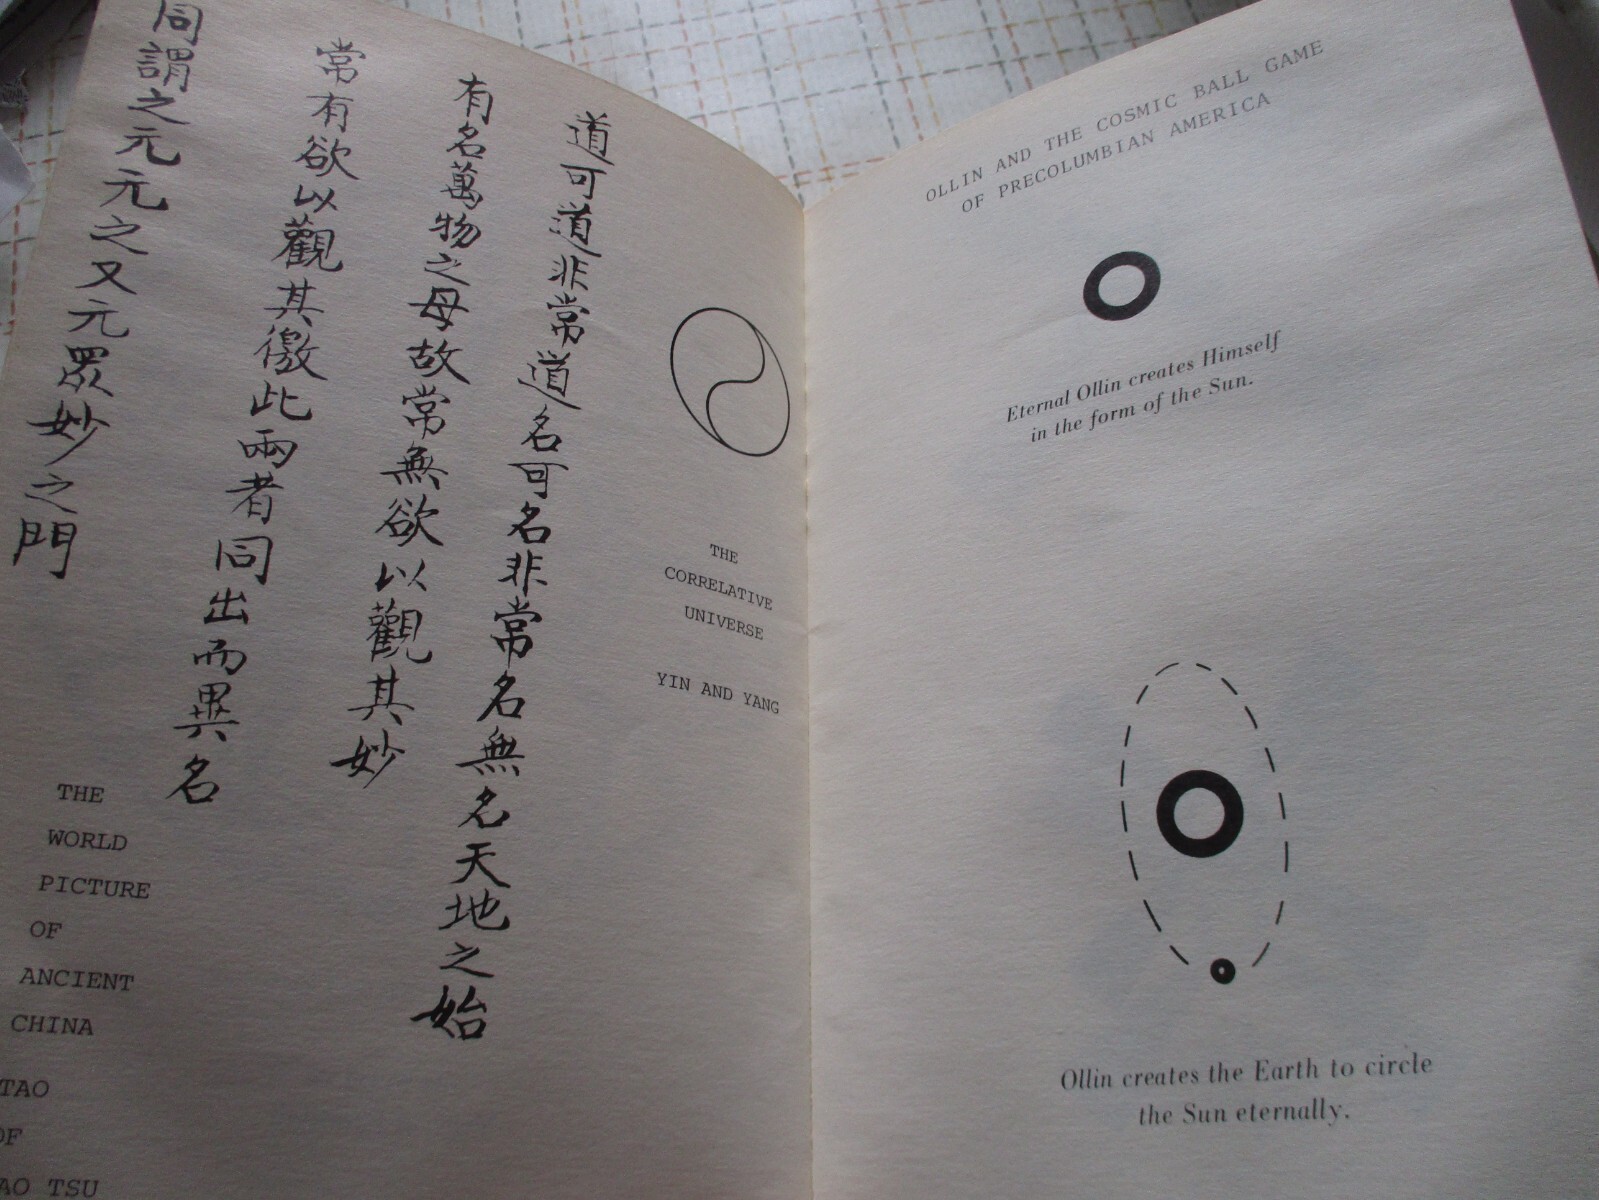 道可道非常道名可名非常名無名天地之始
有名萬物之母故常無欲以觀其妙
常有欲以觀其徼此兩者同出而異名
同謂之元元之又元眾妙之門
THE
CORRELATIVE
UNIVERSE
YIN AND YANG
THE
WORLD
PICTURE
OF
ANCIENT
CHINA
TAO
OF
AO TSU
OLLIN AND THE COSMIC BALL GAME
OF PRECOLUMBIAN AMERICA
Eternal Ollin creates Himself
in the form of the Sun.
Ollin creates the Earth to circle
the Sun eternally.